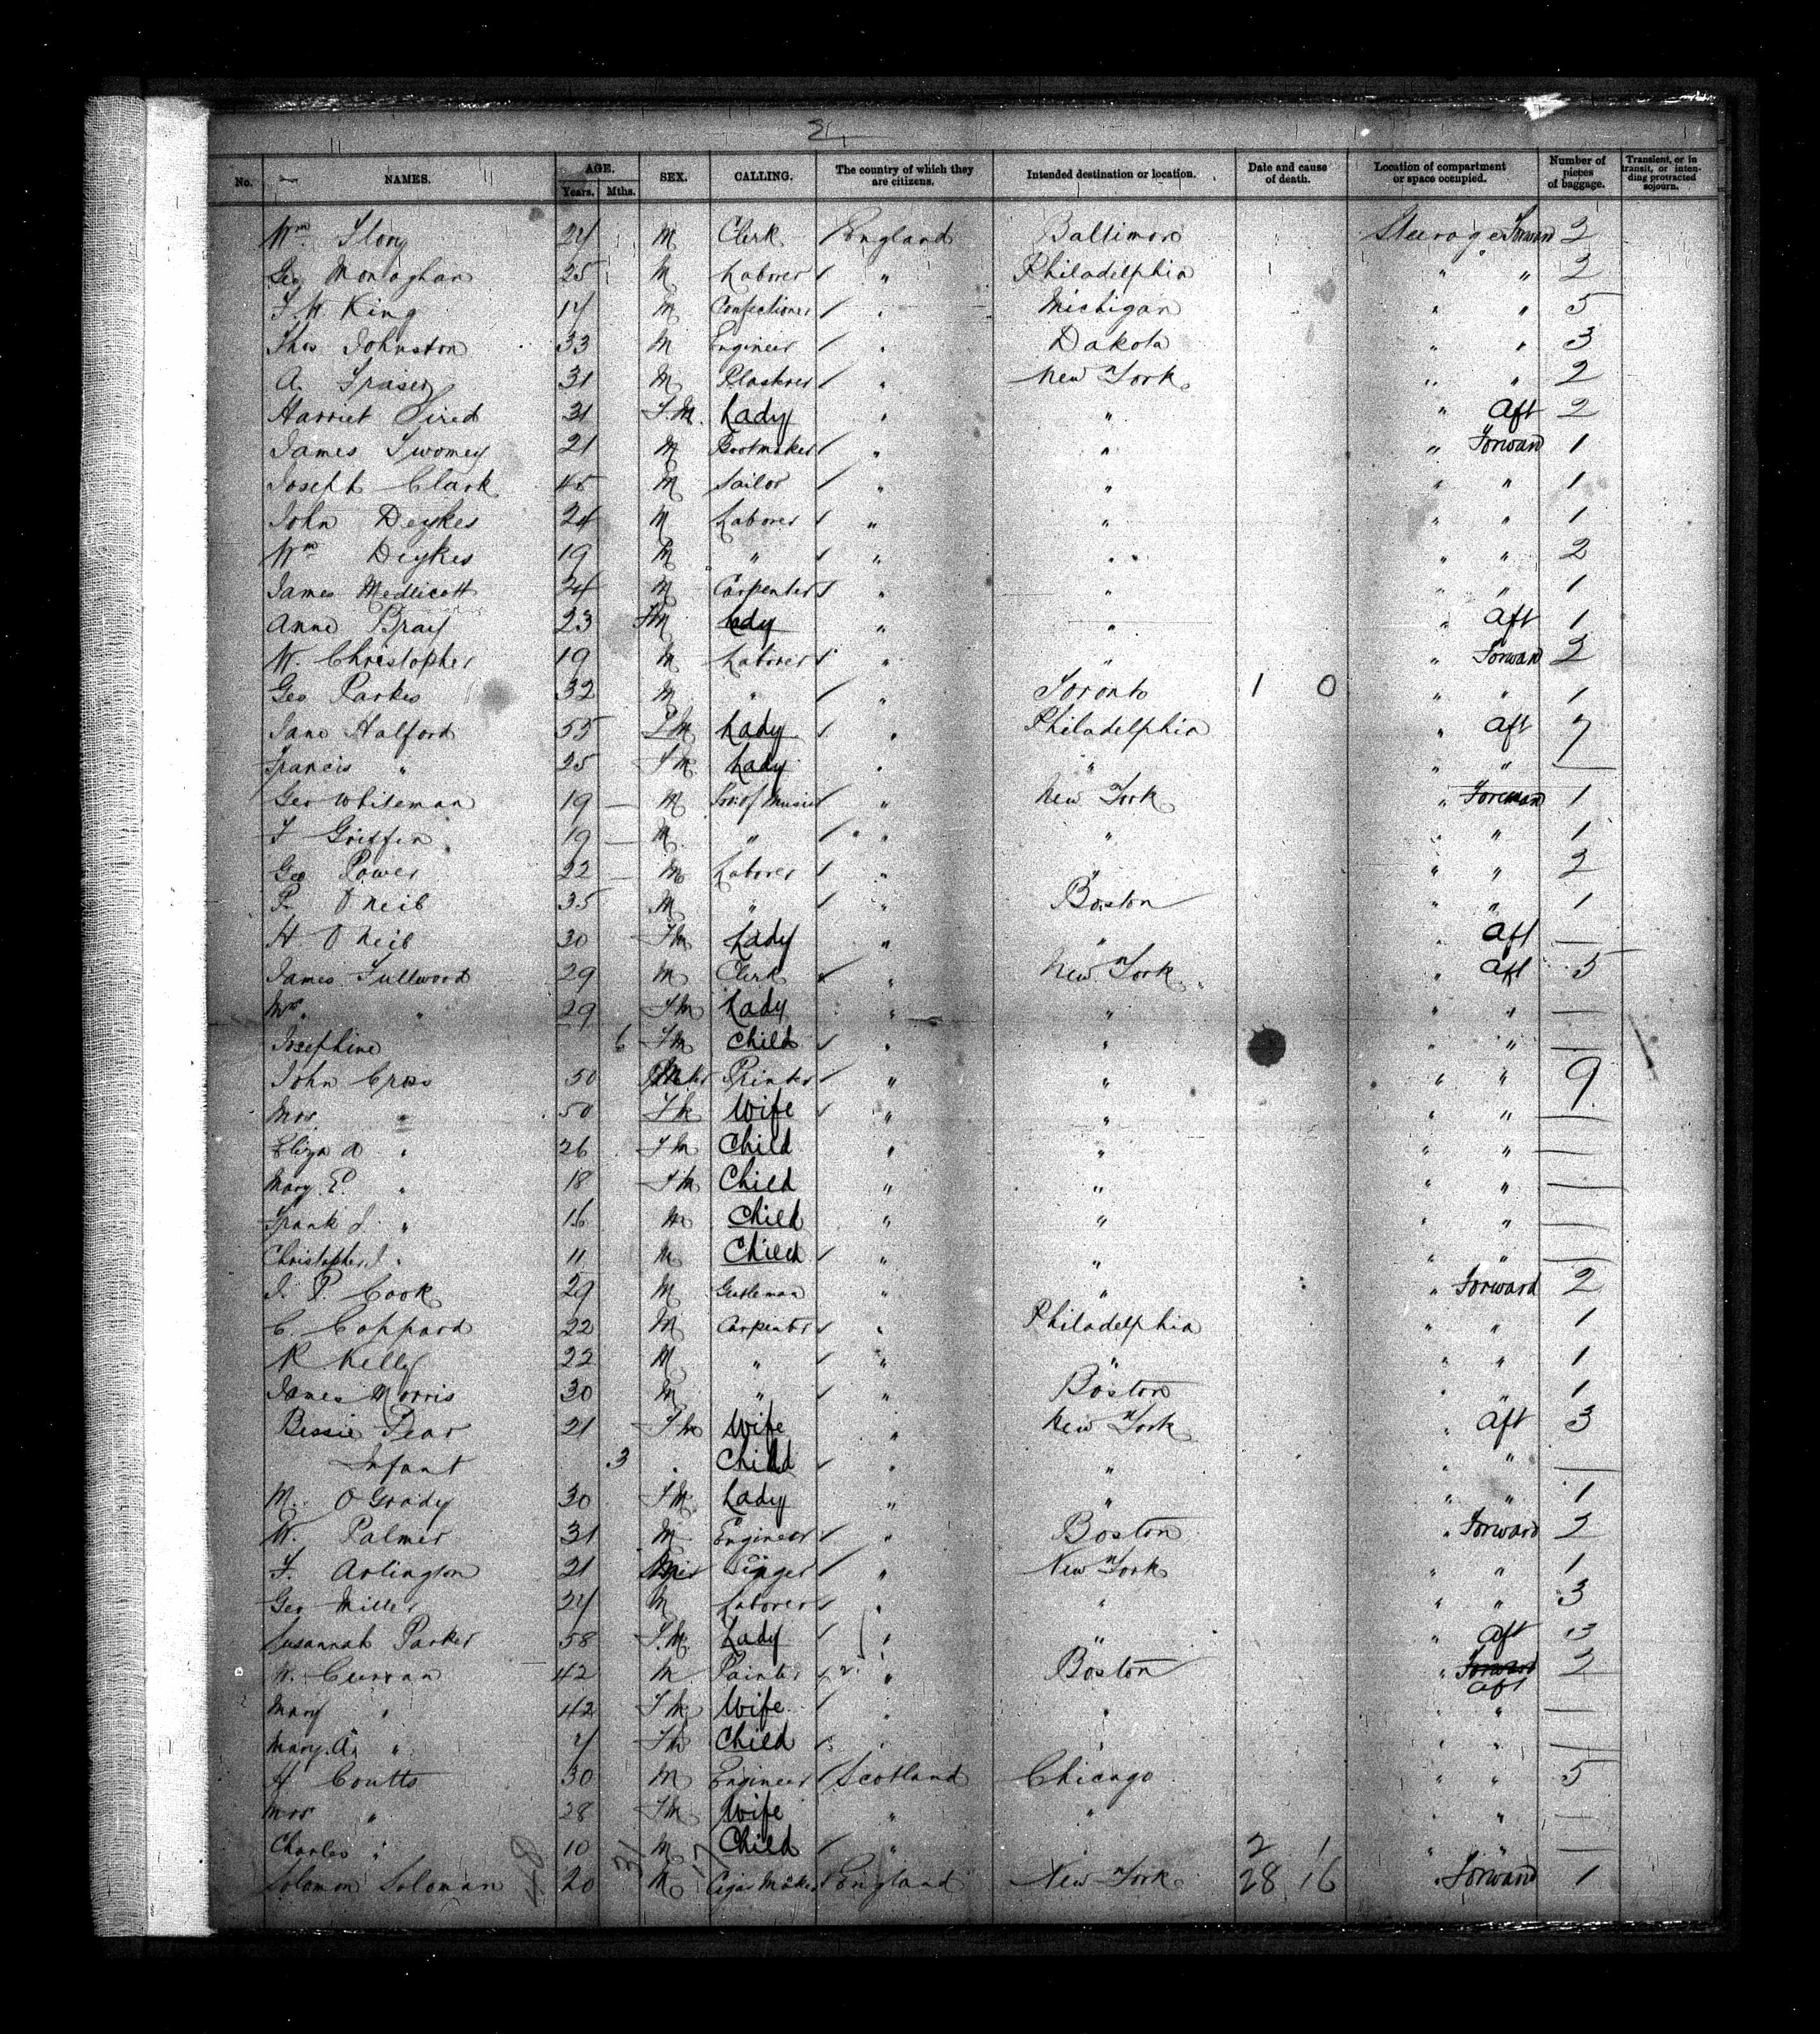 2
No. NAMES. AGE. Years. Mths. SEX. CALLING. The country of which they are citizens. Intended destination or location. Date and cause of death. Location of compartment or space occupied. Number of pieces of baggage. Transient, or in transit, or intending protracted sojourn.
Wm Story 24 M Clerk England Baltimore Steerage Forward 2
Geo Monaghan 25 M Laborer " Philadelphia " " 2
F. H King 14 M Confectioner " Michigan " " 5
Thos Johnston 33 M Engineer " Dakota " " 3
A. Fraser 31 M Plasterer " New York " " 2
Harriet 31 F.M. Lady " " " Aft 2
James Twomey 21 M Bootmaker " " " Forward 1
Joseph Clark 45 M Sailor " " " " 1
John Deykes 24 M Laborer " " " " 1
Wm Deykes 19 M " " " " " 2
James Medlicott 24 M Carpenter " " " " 1
Anne Bray 23 FM Lady " " " Aft 1
W. Christopher 19 M Laborer " " " Forward 2
Geo Parkes 32 M " " Toronto 1 0 " " 1
Jane Halford 55 F M Lady " Philadelphia " Aft 7
Francis " 25 F M Lady " " " " —
Geo Whiteman 19 — M Prof of Music " New York " Forward 1
F Griffin 19 — M " " " " " 1
Geo Power 22 — M Laborer " " " " 2
P. O Neil 35 M " " Boston " " 1
H O Neil 30 F M Lady " " " Aft —
James Fullwood 29 M Clerk " New York " Aft 5
Mrs " 29 F M Lady " " " " —
Josephine 6 F M Child " " " " —
John Cross 50 M Printer " " " " 9
Mrs " 50 F M Wife " " " " —
Eliza A " 26 F M Child " " " " —
Mary E. " 18 F M Child " " " " —
Frank J. " 16 M Child " " " " —
Christopher J. " 11 M Child " " " " —
J. P. Cook 29 M Gentleman " " " Forward 2
C. Coppard 22 M Carpenter " Philadelphia " " 1
R Kelly 22 M " " " " " 1
James Morris 30 M " " Boston " " 1
Bessie Dear 21 F M Wife " New York " Aft 3
Infant 3 Child " " " " —
M. O Grady 30 F M. Lady " " " " 1
W. Palmer 31 M Engineer " Boston " Forward 2
F. Arlington 21 Singer " New York " " 1
Geo Miller 24 M Laborer " " " " 3
Susannah Parker 58 F.M. Lady " " " Aft 3
W. Curran 42 M Painter " Boston " Forward Aft 2
Mary " 42 F M Wife " " " " —
Mary. A. " 4 F M Child " " " " —
H Coutts 30 M Engineer Scotland Chicago " " 5
Mrs " 28 F M Wife " " " " —
Charles " 10 M Child " " 2 1 " " —
Solomon Soloman 20 M Cigar Maker England New York 28 16 " Forward 1
48 31 17